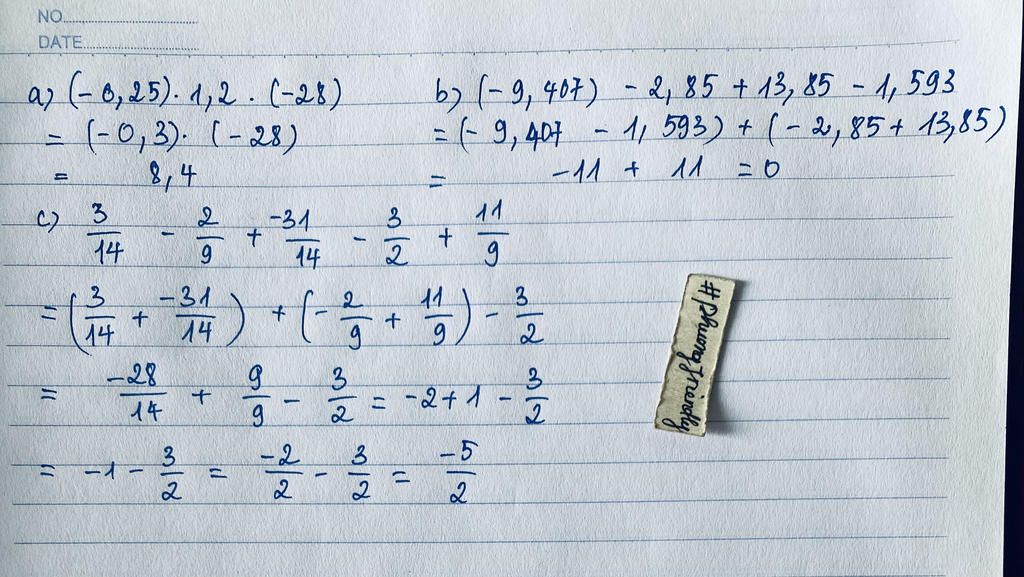 NO.
DATE.
a) (-0,25). 1,2 . (-28)
= (-0,3). (-28)
= 8,4
b) (-9,407) - 2,85 + 13,85 - 1,593
= (-9,407 - 1,593) + (-2,85 + 13,85)
= -11 + 11 = 0
c) 3/14 - 2/9 + -31/14 - 3/2 + 11/9
= (3/14 + -31/14) + (-2/9 + 11/9) - 3/2
= -28/14 + 9/9 - 3/2 = -2+1 - 3/2
= -1 - 3/2 = -2/2 - 3/2 = -5/2
#PhuongFriendly